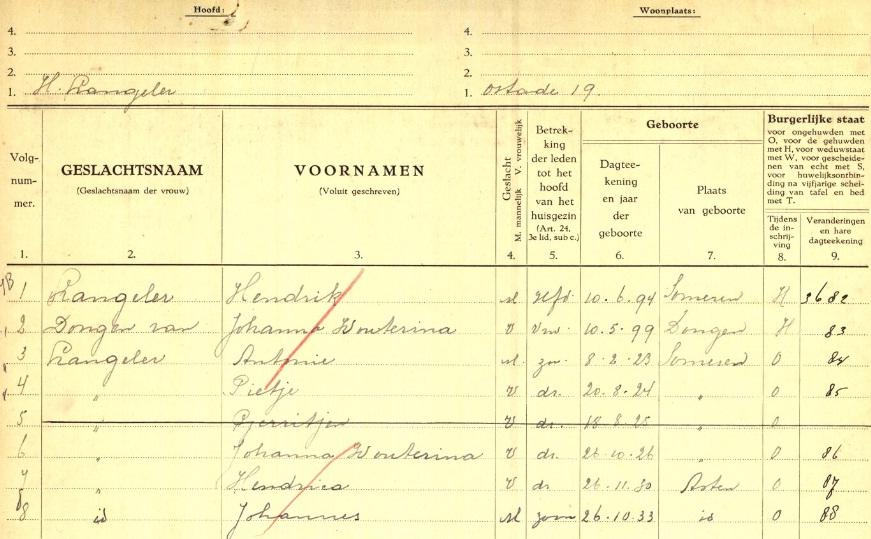 Hoofd: Woonplaats:
4. 4.
3. 3.
2. 2.
1. H. Kangeler 1. Ostade 19.
Volg-num-mer.
GESLACHTSNAAM
(Geslachtsnaam der vrouw)
VOORNAMEN
(Voluit geschreven)
Geslacht
M. mannelijk V. vrouwelijk
Betrek-
king
der leden
tot het
hoofd
van het
huisgezin
(Art. 24,
3e lid, sub c.)
Geboorte
Dagtee-
kening
en jaar
der
geboorte
Plaats
van geboorte
Burgerlijke staat
voor ongehuwden met
O, voor de gehuwden
met H, voor weduwstaat
met W, voor gescheide-
nen van echt met S,
voor huwelijksontbin-
ding na vijfjarige schei-
ding van tafel en bed
met T.
Tijdens
de in-
schrij-
ving
Veranderingen
en hare
dagteekening
1. 2. 3. 4. 5. 6. 7. 8. 9.
1 Kangeler Hendrik M Hfd. 10.6.94 Someren H 3682
2 Dongen van Johanna Wouterina V Vrw. 10.5.99 Dongen H 83
3 Kangeler Antonie M. zn. 8.2.23 Someren O 84
4 " Pietje V dr. 20.8.24 " O 85
5 " Gerritje V dr. 18.8.25 " O
6 " Johanna Wouterina V dr. 26.10.26 " O 86
7 " Hendrica V dr. 26.11.30 Asten O 87
8 id Johannes M zoon 26.10.33 id O 88